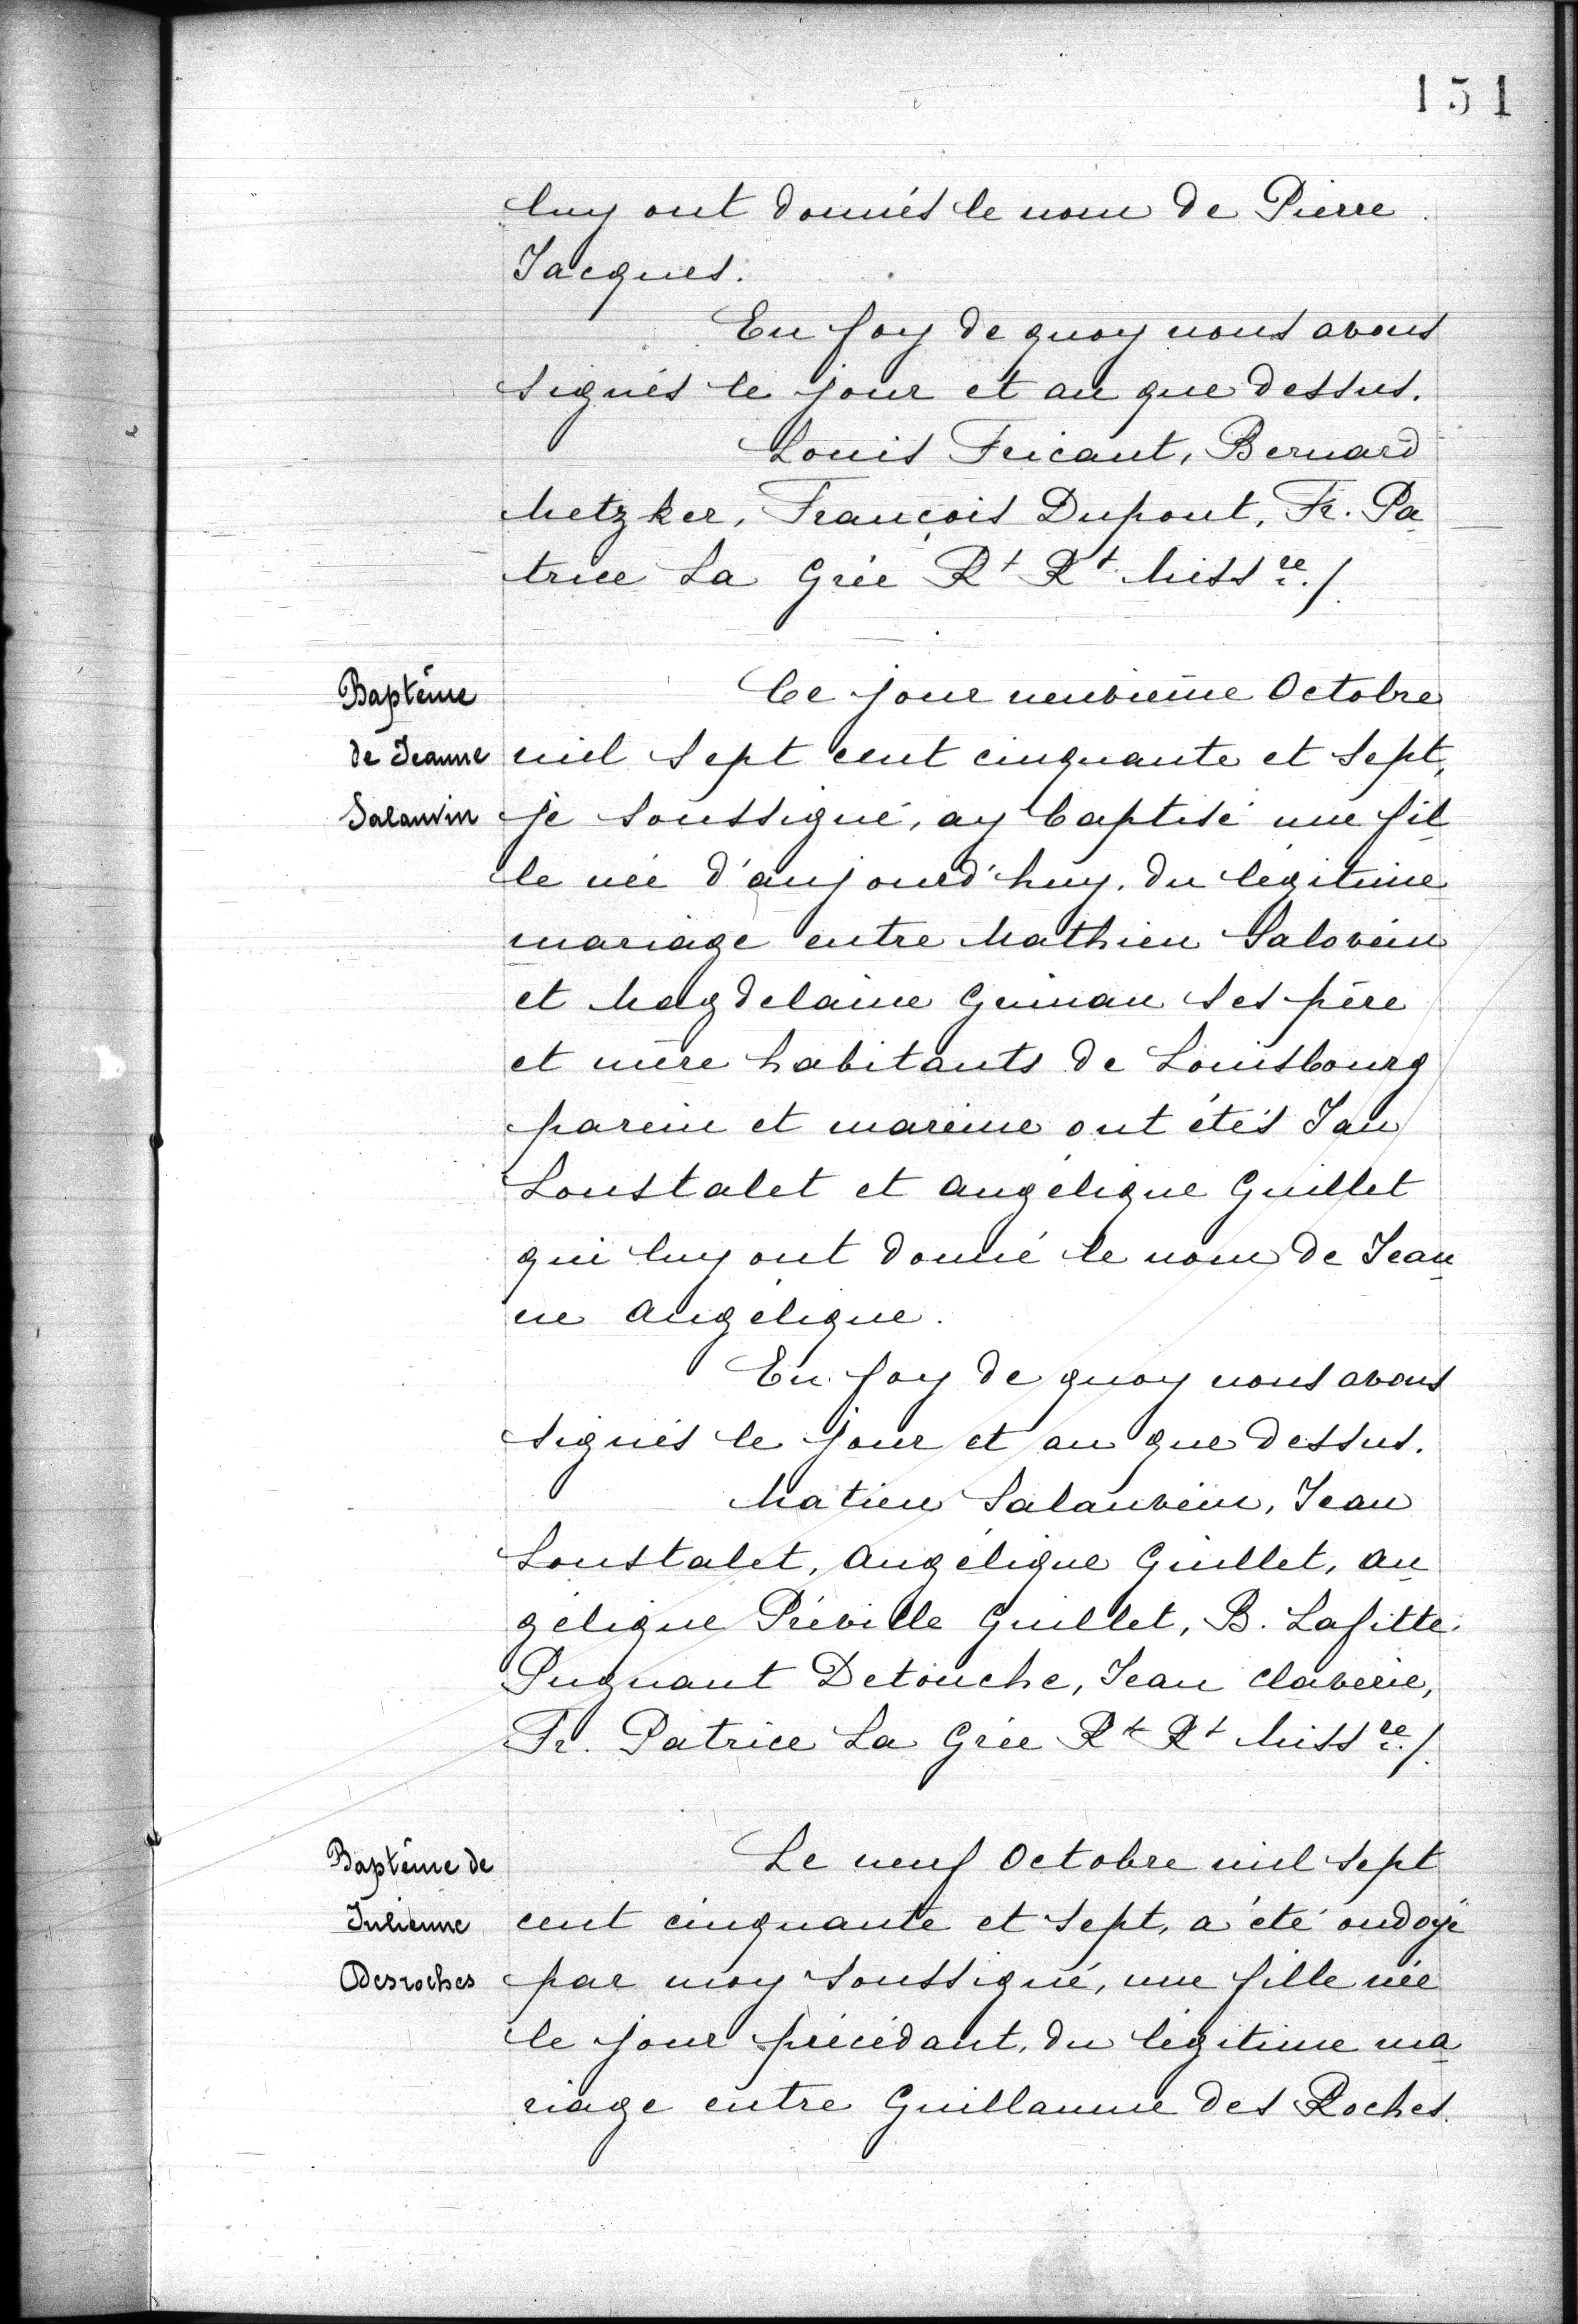 151
luy ont donnés le nom de Pierre
Jacques.
En foy de quoy nous avons
signés le jour et an que dessus.
Louis Fricaut, Bernard
Metzker, François Dupont, Fr. Pa
trice La Grée Rt Rt Missre./.
Baptême
de Jeanne
Salauvin
Ce jour neuvième Octobre
mil sept cent cinquante et sept,
je soussigné, ay baptisé une fil
le née d'aujourd'huy, du légitime
mariage entre Mathieu Salovein
et Magdelaine Guinau ses père
et mère habitants de Louisbourg
parein et mareine ont étés Jau
Loustalet et Angélique Guillet
qui luy ont donné le nom de Jean
ne Angélique.
En foy de quoy nous avons
signés le jour et an que dessus.
Matieu Salauvein, Jean
Loustalet, Angélique Guillet, An
gélique Préville Guillet, B. Lafitte,
Pugnant Detouche, Jean Claverie,
Fr. Patrice La Grée Rt Rt Missre./.
Baptême de
Julienne
Desroches
Le neuf Octobre mil sept
cent cinquante et sept, a été ondoyé
par moy soussigné, une fille née
le jour précédant, du légitime ma
riage entre Guillaume des Roches